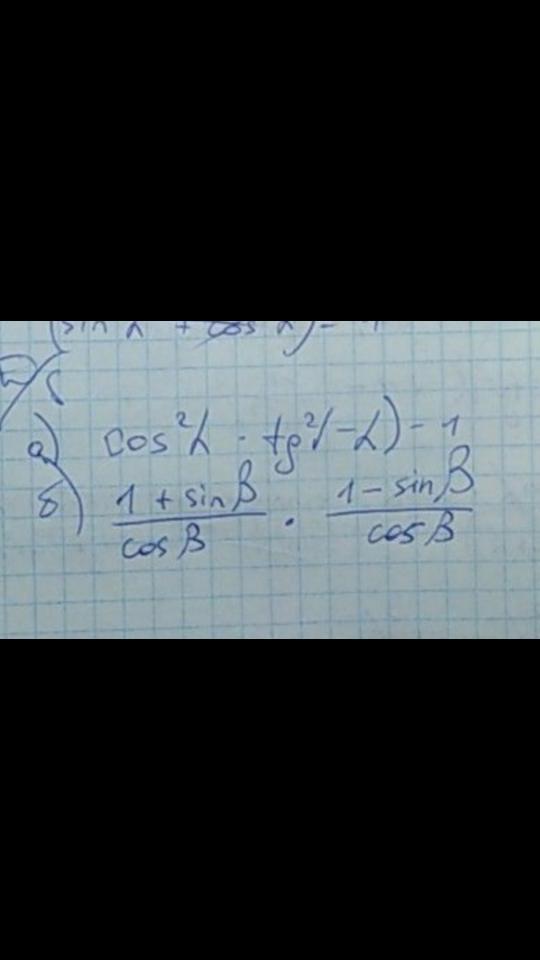 а) cos²α · tg²(-α) - 1
б) (1 + sin β)/(cos β) · (1 - sin β)/(cos β)